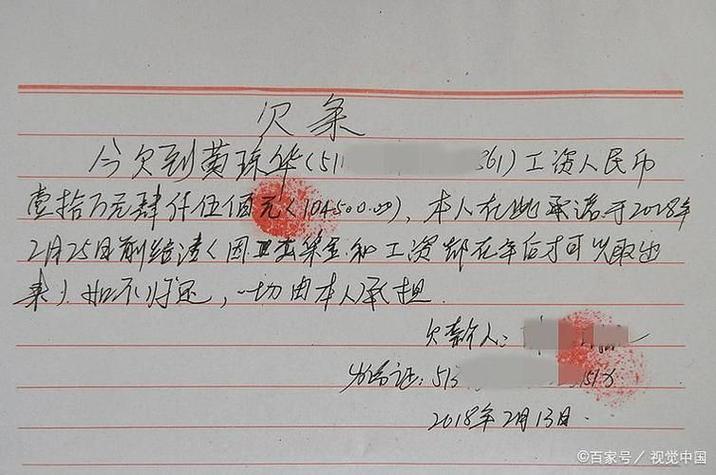 欠条
今欠到黄琼华(511 361)工资人民币
壹拾万元肆仟伍佰元(104500.00),本人在此承诺于2018年
2月25日前结清(因 和工资都在年后才可以取出
来).如不归还,一切由本人承担.
欠款人:
身份证:51 151X
2018年2月13日.
©百家号/视觉中国